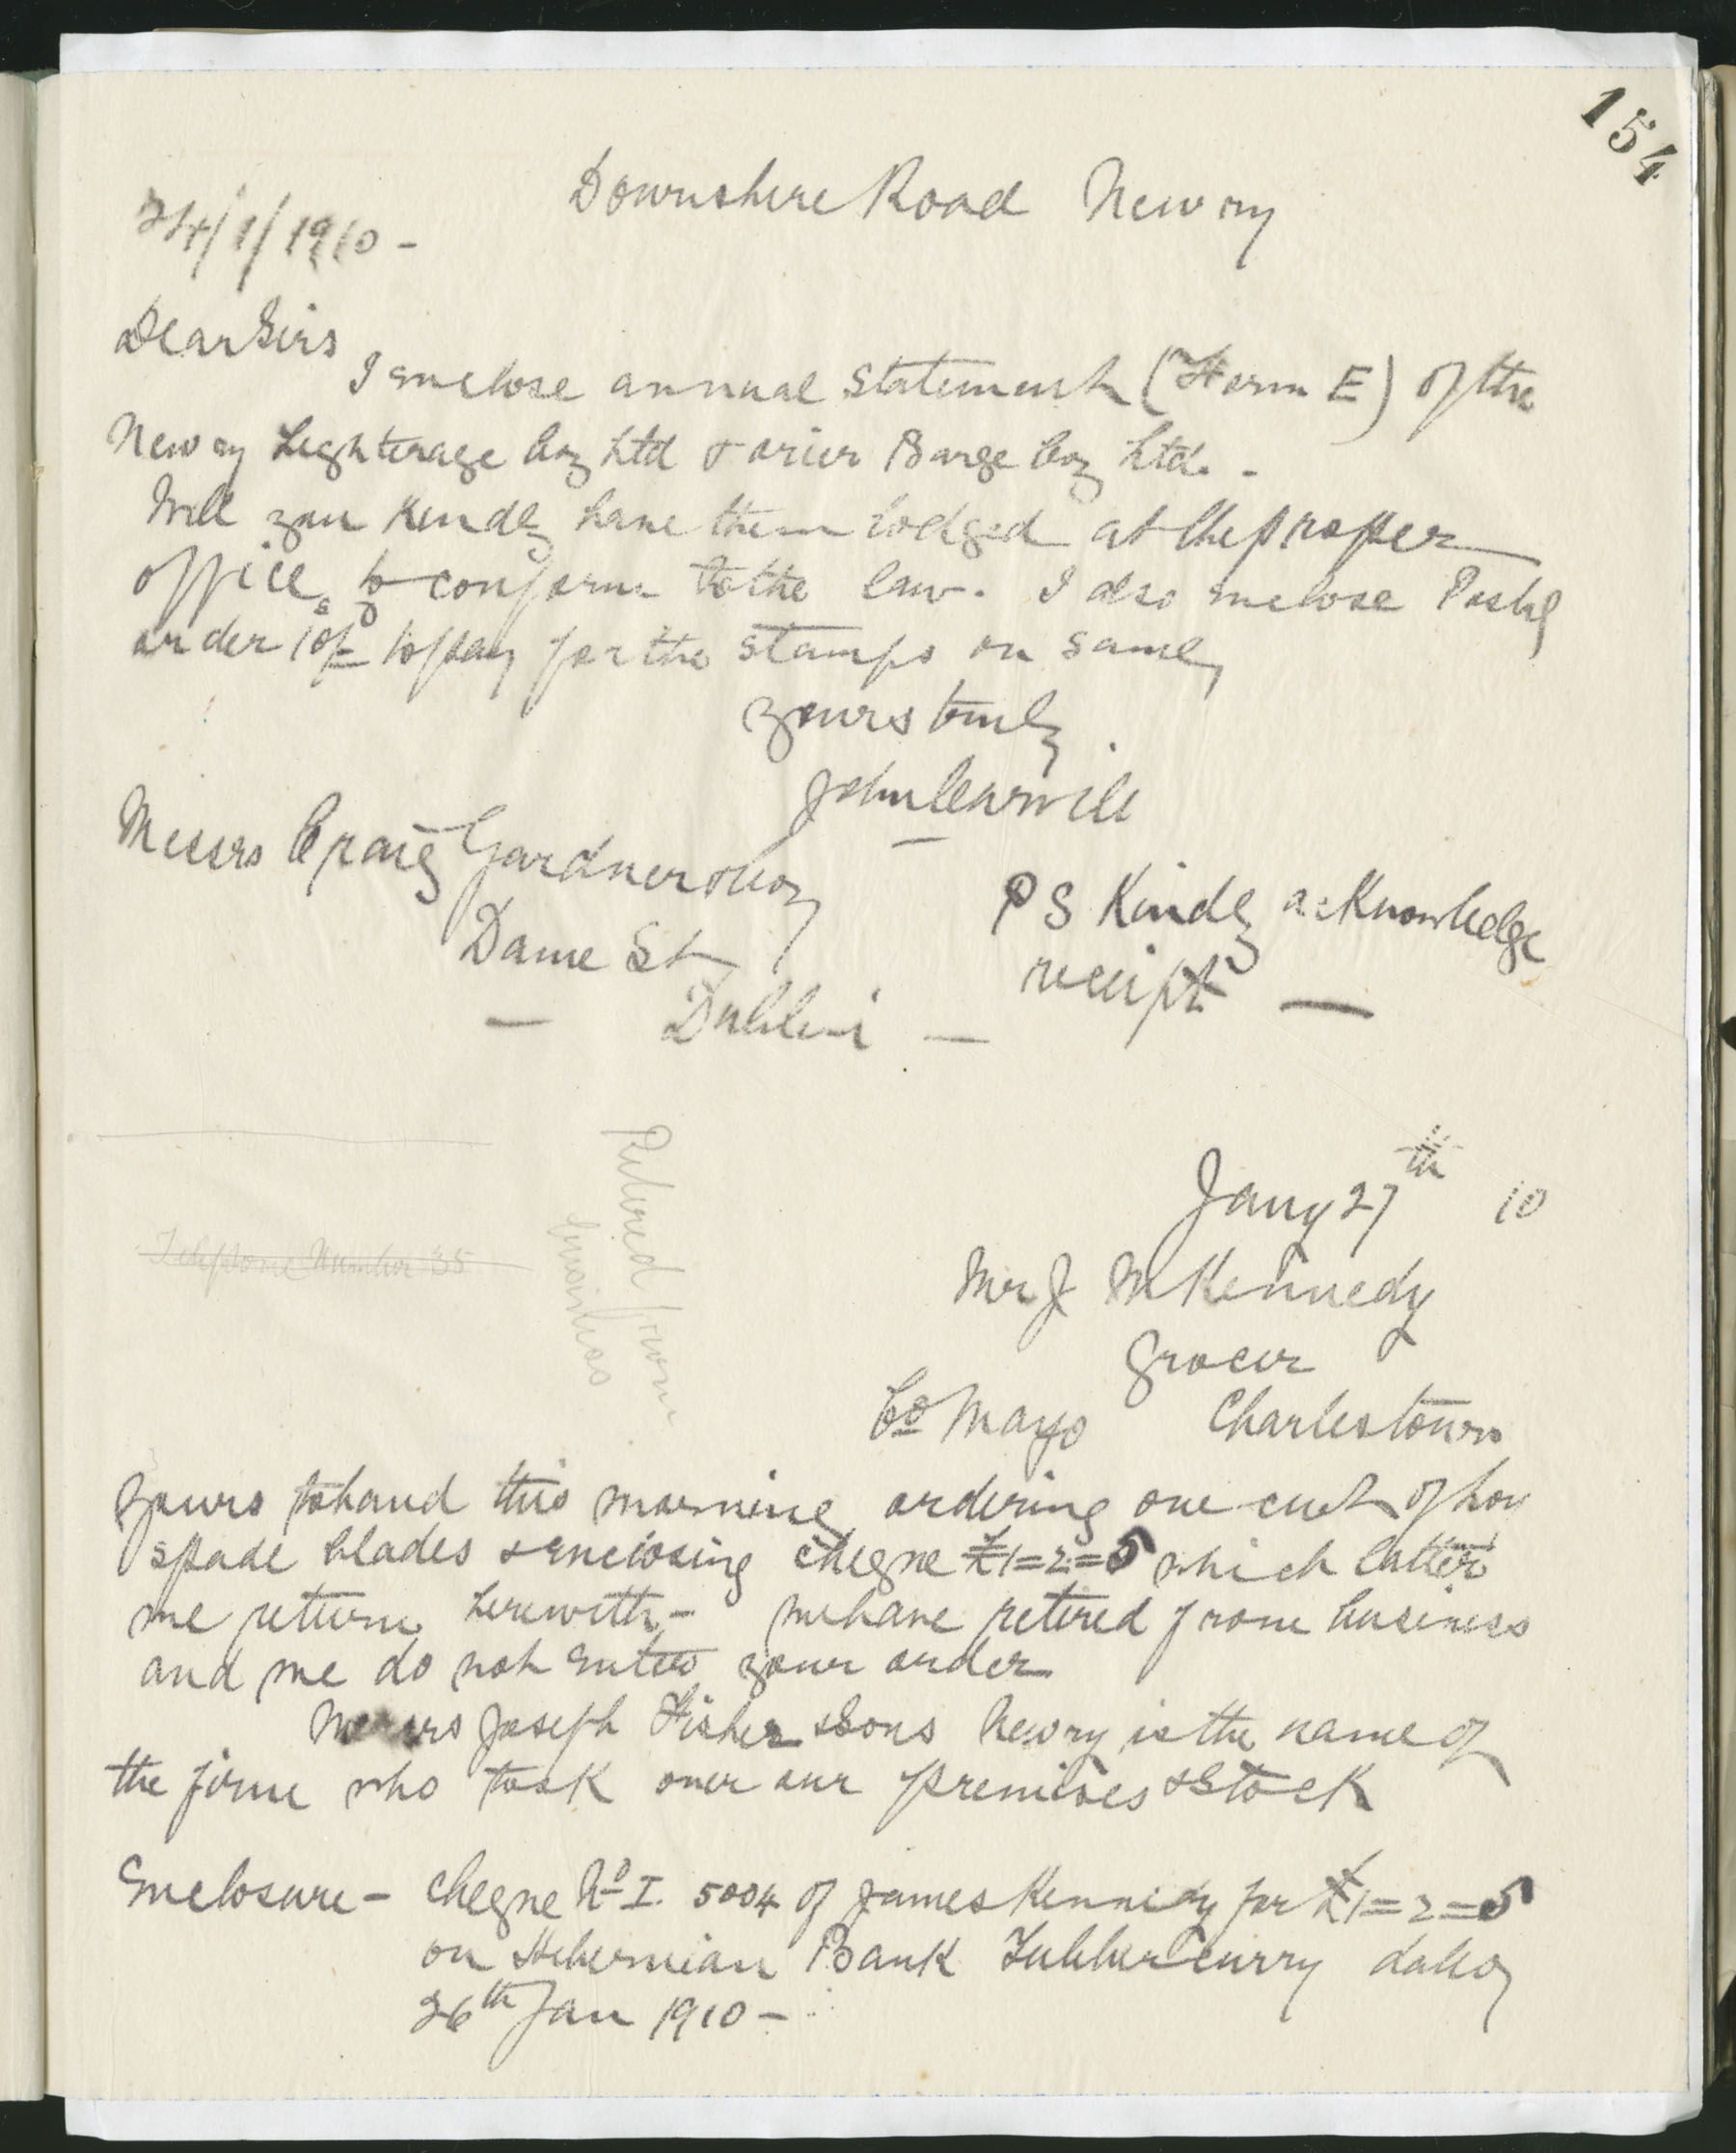 154
Downshire Road Newry
24/1/1910 -
Dear Sirs
I enclose annual statement (Form E) of the
Newry Lighterage Coy Ltd & Barge Coy Ltd. -
Will you kindly have them lodged at the proper
office to conform to the law. I also enclose Postal
order 10/- to pay for the stamps on same,
yours truly
John
Messrs Craig Gardner & Coy
Dame St
- Dublin -
PS Kindly acknowledge
receipt —
Jany 27th 10
Telephone Number 35
Retired from
business
Mr J M Kennedy
Grocer
Co Mayo Charlestown
yours to hand this morning ordering one cwt of
spade blades & enclosing cheque £1=2=5 which latter
we return herewith - we have retired from business
and we do not enter your order
Messrs Joseph Fisher & Sons Newry is the name of
the firm who took over our premises & Stock
Enclosure - cheque No I. 5004 of James Kennedy for £1=2=5
on Hibernian Bank Tubbercurry
26th Jan 1910 -